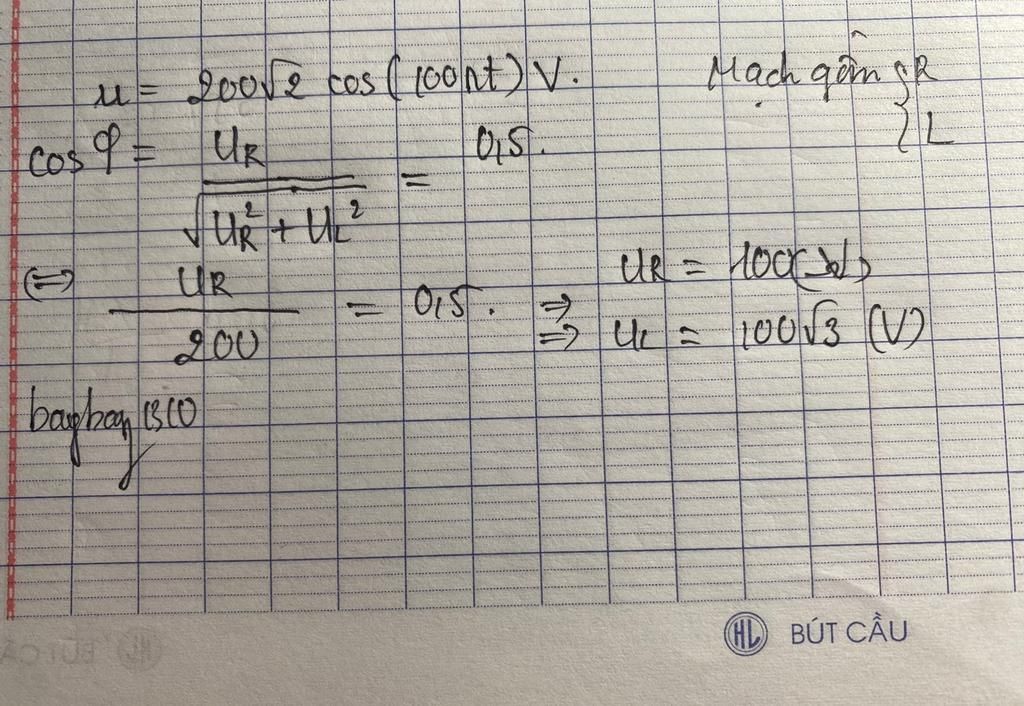 u = 200√2 cos(100πt) V. Mạch gồm { R
L
cos φ = UR / √(UR² + UL²) = 0,5.
⇔ UR / 200 = 0,5. ⇒ UR = 100
⇒ UL = 100√3 (V)
baybay
HL BÚT CẦU